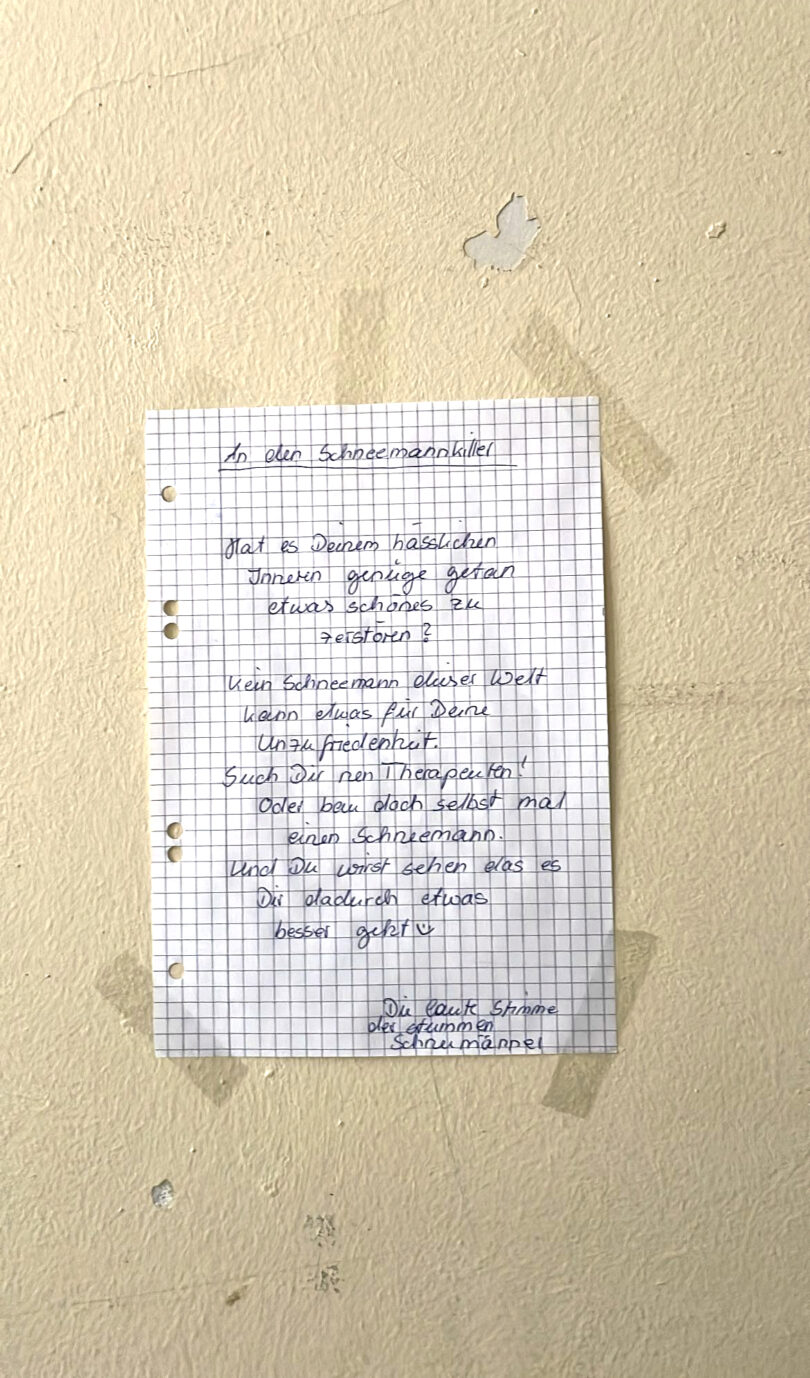 An den Schneemannkiller
Hat es Deinem hässlichen
Inneren genüge getan
etwas schönes zu
zerstören?
Kein Schneemann dieser Welt
kann etwas für Deine
Unzufriedenheit.
Such Dir nen Therapeuten!
Oder bau doch selbst mal
einen Schneemann.
Und Du wirst sehen das es
Dir dadurch etwas
besser geht
Die laute Stimme
der stummen
Schneemänner